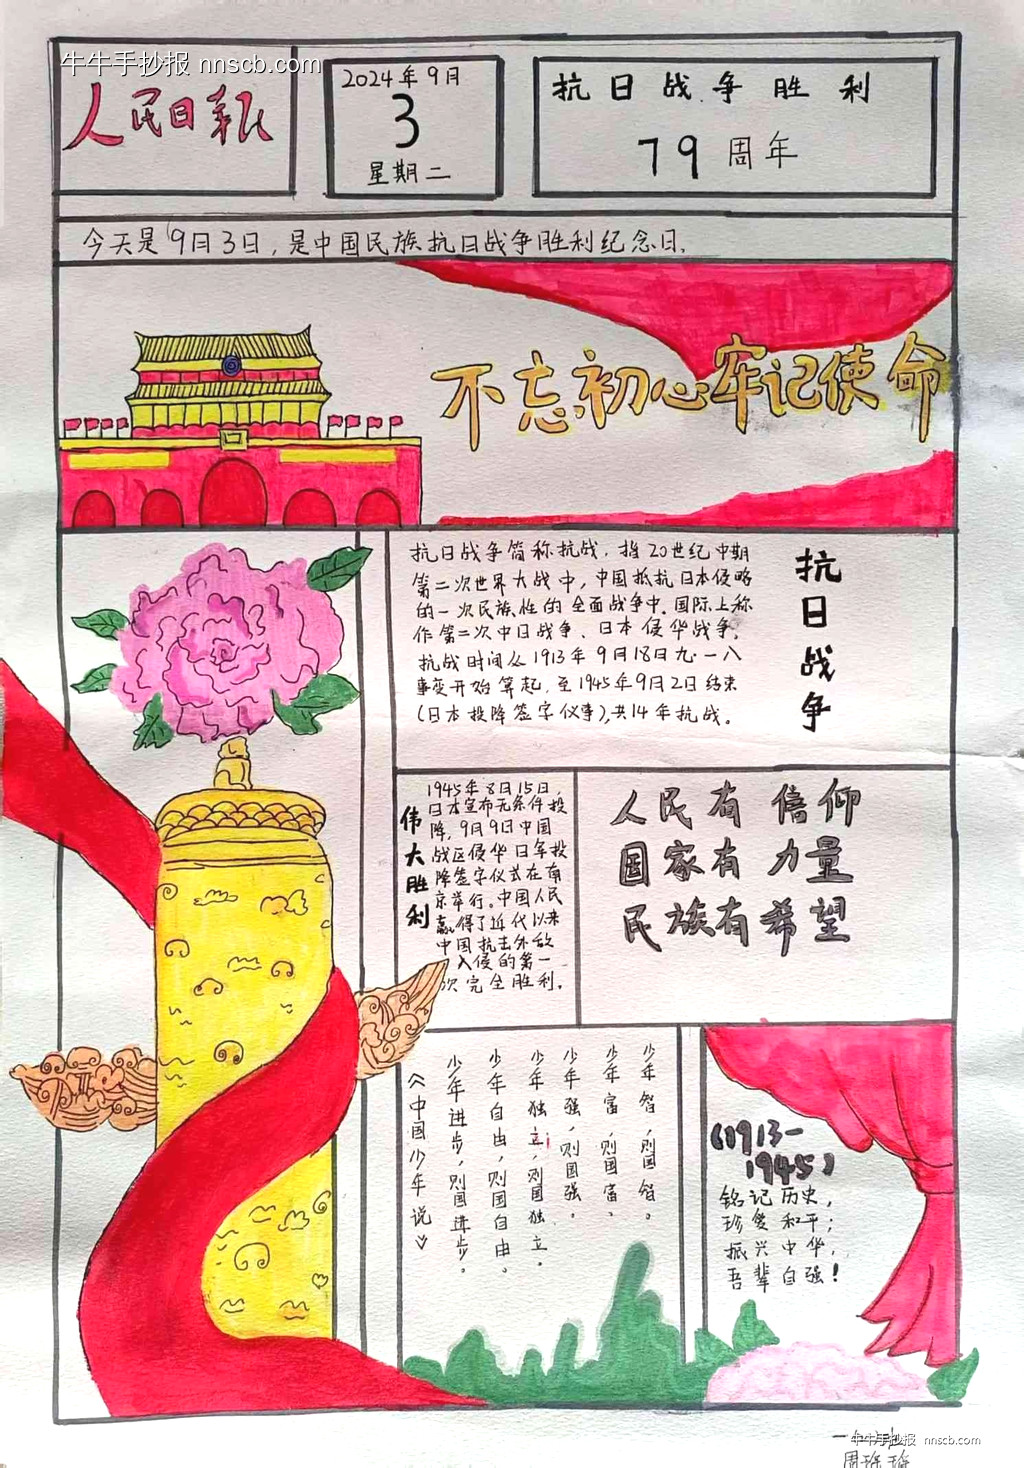 牛牛手抄报 nnscb.com
人民日報
2024年9月
3
星期二
抗日战争胜利
79周年
今天是9月3日,是中国民族抗日战争胜利纪念日.
不忘初心牢记使命
抗日战争简称抗战,指20世纪中期
第二次世界大战中,中国抵抗日本侵略
的一次民族性的全面战争中.国际上称
作第二次中日战争、日本侵华战争,
抗战时间从1913年9月18日九·一八
事变开始算起,至1945年9月2日结束
(日本投降签字仪事),共14年抗战。
抗日战争
伟大胜利
1945年8月15日,
日本宣布无条件投
降,9月9日中国
战区侵华日军投
降签字仪式在南
京举行。中国人民
赢得了近代以来
中国抗击外敌
入侵的第一
次完全胜利.
人民有信仰
国家有力量
民族有希望
少年智,则国智。
少年富,则国富,
少年强,则国强。
少年独立,则国独立.
少年自由,则国自由.
少年进步,则国进步。
《中国少年说》
(1913-
1945)
铭记历史,
珍爱和平;
振兴中华,
吾辈自强!
牛牛手抄报 nnscb.com